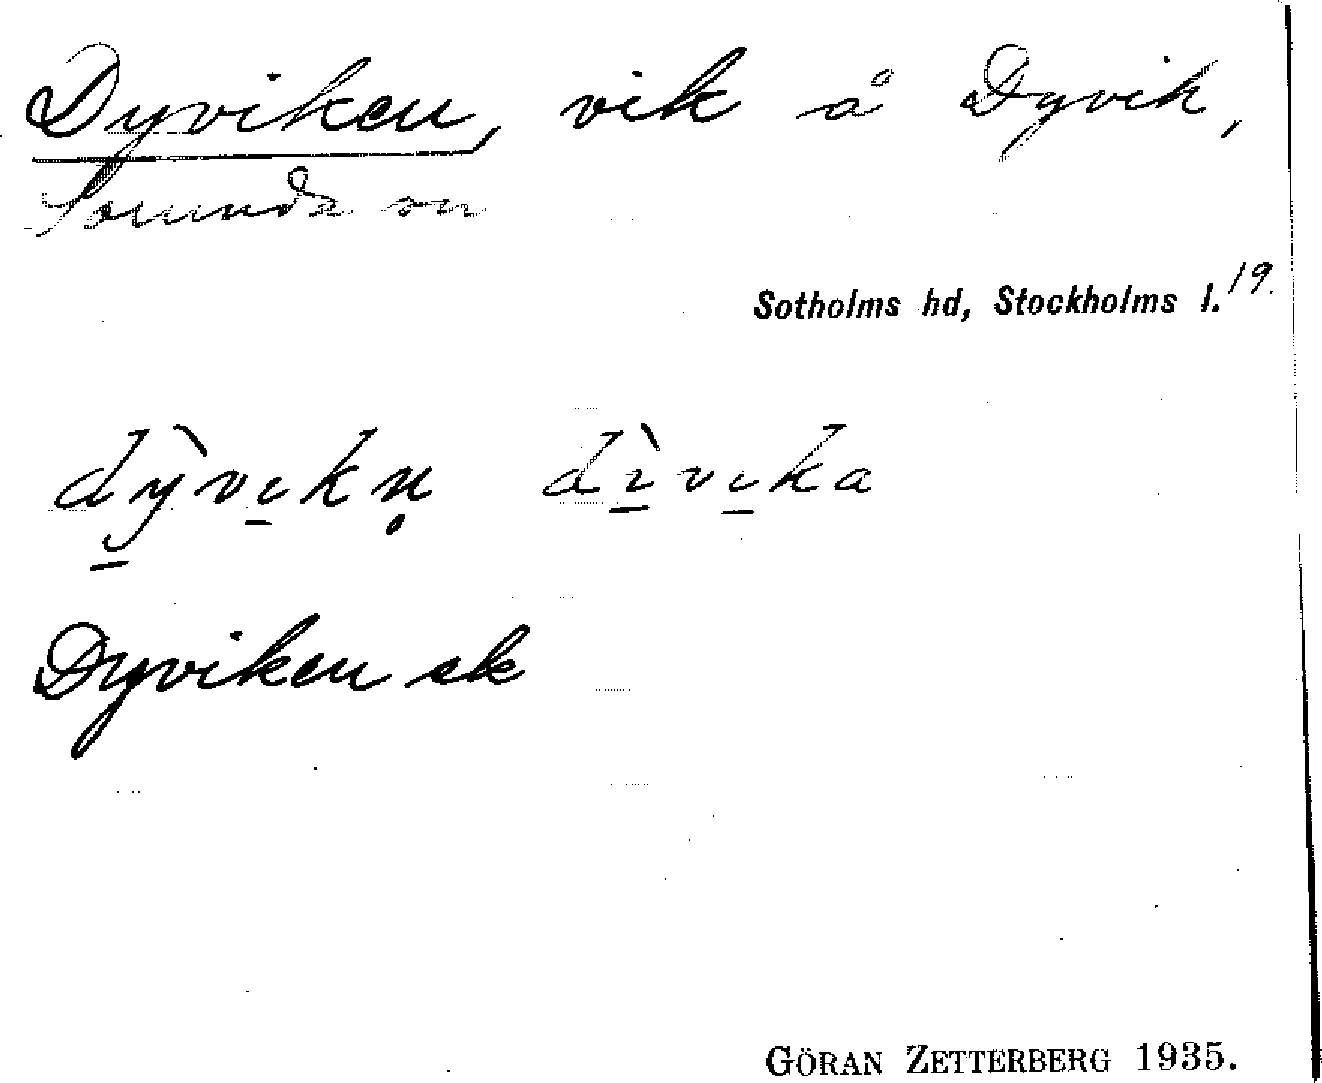 Dyviken, vik å Dyvik,
Sorunda sn
Sotholms hd, Stockholms l. 19.
dỳ̠vi̠kn̥ dì̠vi̠ka
Dyviken ek
GÖRAN ZETTERBERG 1935.